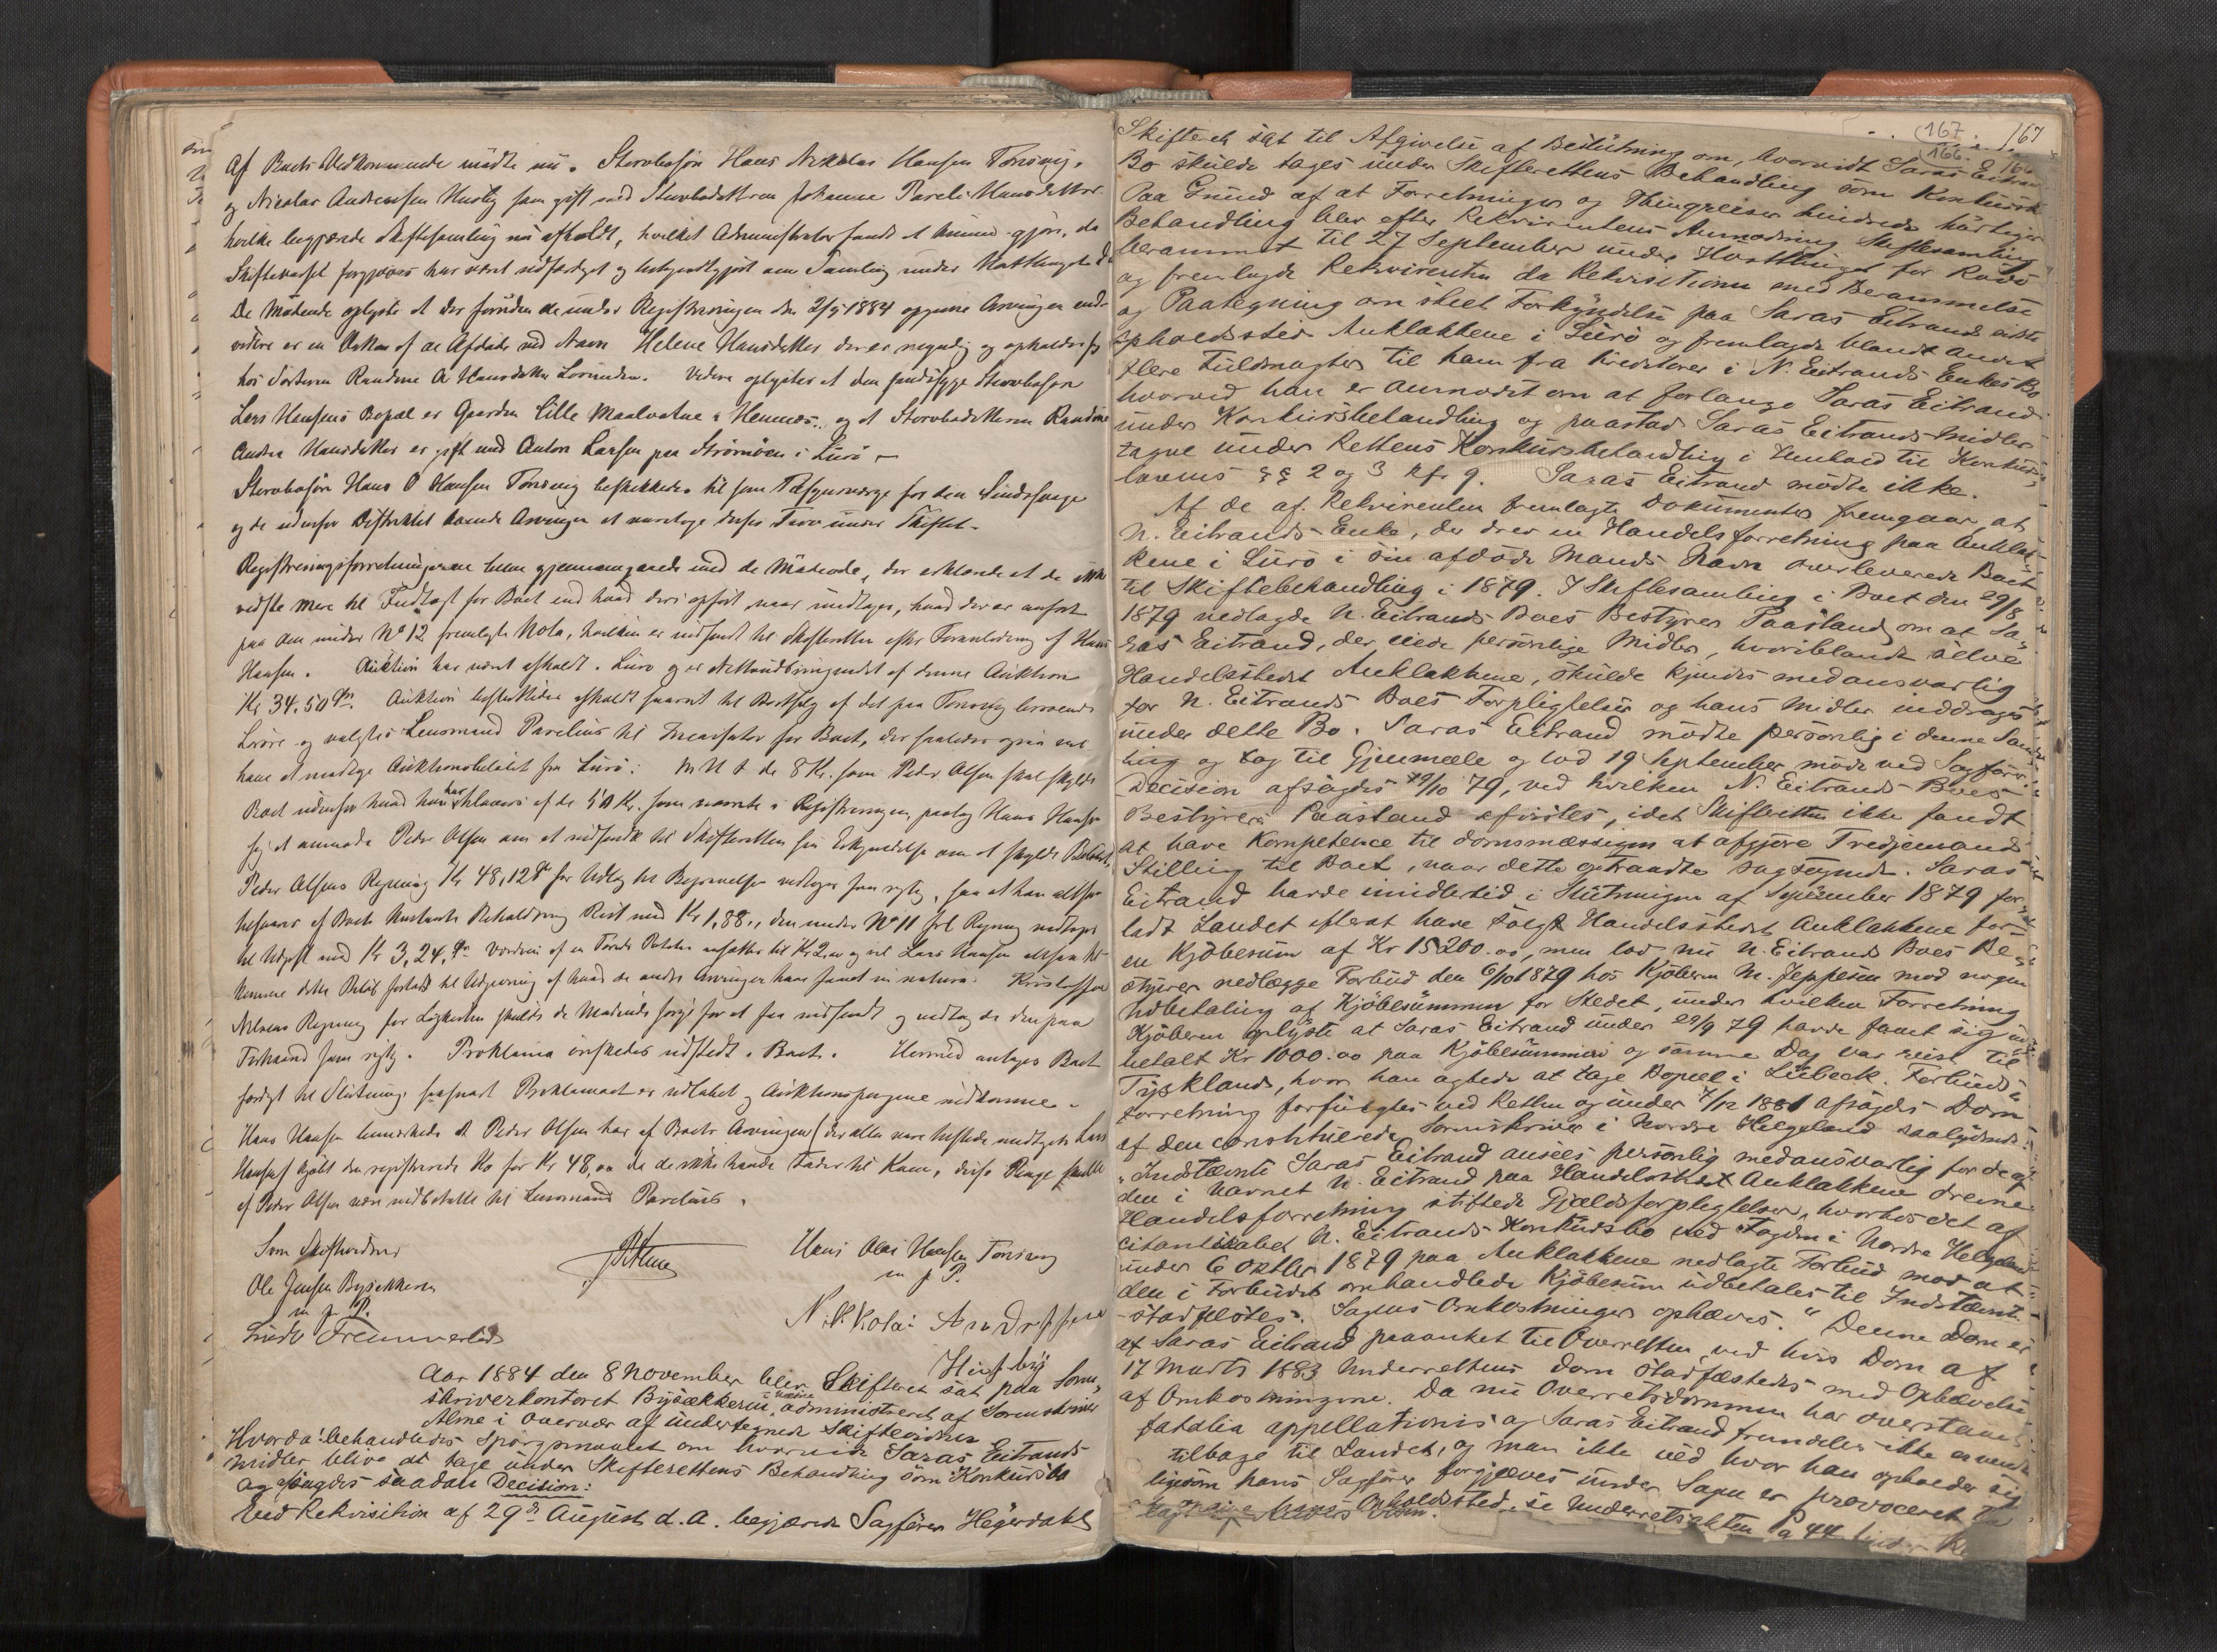 Af Boets Vedkommende mødte nu. Stervbosøn Hans Nikolai Hansen Tonsvig,
og Nicolai Andreassen Husby som gift med Stervbodatteren Johanne Pareli Hansdatter
hvilke begjærede Skiftesamling nu afholdt, hvilket Administrator fandt at kunne gjøre, da
Skiftevarsel forgjæves har været udfærdiget og bekjendtgjort om Samling under
De Mødende oplyste at der foruden de under Registreringen den 2/5 1884 opgivne Arvinger end-
videre er en af Afdøde ved Navn Helene Hansdatter der er myndig og opholder sig
hos Søsteren Randine A Hansdatter Lovunden. Videre oplystes at den sindssyge Stervbosøn
Lars Hansens Bopæl er Gaarden Lille Maalvatne i Hemnæs. og at Stervbodatteren Randine
Andrea Hansdatter er gift med Anton Larsen paa Strømøen i Lurø –
Stervbosøn Hans O Hansen Tonsvig beskikkedes til som for den Sindssyge
og de udenfor Distriktet boende Arvinger at varetage deres Tarv under Skiftet.
Registreringsforretningerne blev gjennemgaaede med de Mødende, der erklærede at de ikke
vidste mere til Indtægt for Boet end hvad deri opført, naar undtages, hvad der er anført
paa den under No 12 fremlagte Nota, hvilken er indsendt til Skifteretten efter Foranledning af Hans
Hansen. Auktion har været afholdt i Lurø og er Nettoudbringendet af denne Auktion
Kr 34.50 Auktion besluttedes afholdt snarest til Bortsalg af det paa Tonsvig beroende
Løsøre og valgtes Lensmand Parelius til Incassator for Boet, der saaledes ogsaa vil
have at modtage Auktionsbeløbet fra Lurø. M H t de 8 Kr. som Peder Olsen skal skylde
Boet udenfor hvad han har af de 50 Kr. som nævnte i Registreringen, paatog Hans Hansen
sig at anmode Peder Olsen om at indsende til Skifteretten sin Erkjendelse om at skylde Beløbet.
Peder Olsens Regning Kr 48,12 for Udlæg til Begravelsen vedtages som rigtig, saa at han altsaa
tilsvarer af Boets Kontante Beholdning Rest med Kr 1,88., den under No 11 frl. Regning vedtages
til Udgift med Kr 3,24. Værdien af en Tønde Poteter ansættes til Kr 2,00 og vil Lars Hansen altsaa til-
komme dette Beløb forlods til Udjevning af hvad de andre Arvinger have faaet in natura. Kristoffer
Nilsens Regning for Ligkisten skulde de Mødende sørge for at faa indsendt og vedtog de den paa
Forhaand som rigtig. Proklama ønskedes udstedt i Boet. Hermed antages Boet
færdigt til Slutning, saasnart Proklamaet er udløbet og Auktionspengene indkomne.
Hans Hansen bemærkede at Peder Olsen har af Boets Arvinger (der alle vare tilstede undtagen Lars
Hansen) kjøbt den registrerede Ko for Kr 48,00 da de ikke havde Foder til Koen, disse Penge skulle
af Peder Olsen være indbetalte til Lensmand Parelius.
Som Skiftevidner
Hans Olai Hansen Tonsvig
m p P.
Ole Jensen Bysækkeren
m p P.
Nikkolai Andreassen
Husby
Aar 1884 den 8 November blev Skifteret sat paa Soren-
skriverkontoret Bysækkeren i Næsne administreret af Sorenskriver
Alme i Overvær af undertegnede Skiftevidner
Hvorda! behandledes Spørgsmaalet om hvorvidt Saras Eitrands
Midler blive at tage under Skifterettens Behandling som Konkursbo
og afsagdes saadan Decision:
Ved Rekvisition af 29de August d. A. begjærede Sagfører Hegerdahl
167. 167
166.
Skifteret sat til Afgivelse af Beslutning om, hvorvidt Saras Eitrands
Bo skulde tages under Skifterettens Behandling som Konkursbo
Paa Grund af at Forretninger og Thingreiser hindrede hurtiger
Behandling blev efter Rekvirentens Anmodning Skiftesamling
berammet til 27 September under Høstthinget for Rødø
og fremlagde Rekvirenten da Rekvisitionen med Berammelse
og Paategning om skeet Forkyndelse paa Saras Eitrands sidste
Opholdssted Anklakkene i Lurø og fremlagde blandt andet
flere Fuldmagter til ham fra Kreditorer i N. Eitrands Enkes Bo
hvorved han er anmodet om at forlange Saras Eitrand
under Konkursbehandling og paastod Saras Eitrands Midler
tagne under Rettens Konkursbehandling i Henhold til Konkurs-
lovens §§ 2 og 3 kfr 9. Saras Eitrand mødte ikke.
Af de af Rekvirenten fremlagte Dokumenter fremgaar, at
N. Eitrands Enke, der drev en Handelsforretning paa Anklak-
kene i Lurø i sin afdøde Mands Navn overleverede Boet
til Skiftebehandling i 1879. I Skiftesamling i Boet den 29/8
1879 nedlagde N. Eitrands Boes Bestyrer Paastand om at Sa-
ras Eitrand, der eiede personlige Midler, hvoriblandt selve
Handelsstedet Anklakkene, skulde kjendes medansvarlig
for N. Eitrands Boes Forpligtelser og hans Midler inddrages
under dette Bo. Saras Eitrand mødte personlig i denne Sam-
ling og tog til Gjenmæle og lod 19 September møde ved Sagfører
Decision afsagdes 29/10 79, ved hvilken N. Eitrands Boes
Bestyrers Paastand afvistes, idet Skifteretten ikke fandt
at have Kompetence til domsmæssigen at afgjøre Tredjemands
Stilling til Boet, naar dette optraadte sagsøgende. Saras
Eitrand havde imidlertid i Slutningen af September 1879 for-
ladt Landet efterat have solgt Handelsstedet Anklakkene for
en Kjøbesum af Kr 15200.00, men lod nu N. Eitrands Boes Be-
styrer nedlægge Forbud den 6/10 1879 hos Kjøberen M. Jeppesen mod nogen
Udbetaling af Kjøbesummen for Stedet, under hvilken Forretning
Kjøberen oplyste at Saras Eitrand under 29/9 79 havde faaet sig ud-
betalt Kr 1000.00 paa Kjøbesummen og samme Dag var reist til
Tyskland, hvor han agtede at tage Bopæl i Lübeck. Forbuds-
forretning forfulgtes ved Retten og under 7/12 1881 afsagdes Dom
af den constituerede Sorenskriver i Nordre Helgeland saalydende:
"Indstævnte Saras Eitrand ansees personlig medansvarlig for de af
den i Navnet N. Eitrand paa Handelsstedet Anklakkene drevne
Handelsforretning stiftede Gjældsforpligtelser, hvorhos det af
Citantskabet N. Eitrands Konkursbo ved Fogden i Nordre Helgeland
under 6 Oktbr 1879 paa Anklakkene nedlagte Forbud mod at
den i Forbudet omhandlede Kjøbesum udbetales til Indstævnte
stadfæstes. Sagens Omkostninger ophæves." Denne Dom er
af Saras Eitrand paaanket til Overretten, ved hvis Dom af
17 Marts 1883 Underrettens Dom stadfæstedes med Ophævelse
af Omkostningerne. Da nu Overretsdommen har overstaaet
fatalia appellationis og Saras Eitrand fremdeles ikke er vendt
tilbage til Landet, og man ikke ved hvor han opholder sig
ligesom hans Sagfører forgjæves under Sagen er provoceret til
hans Opholdssted, se Underretsakten Pag 44